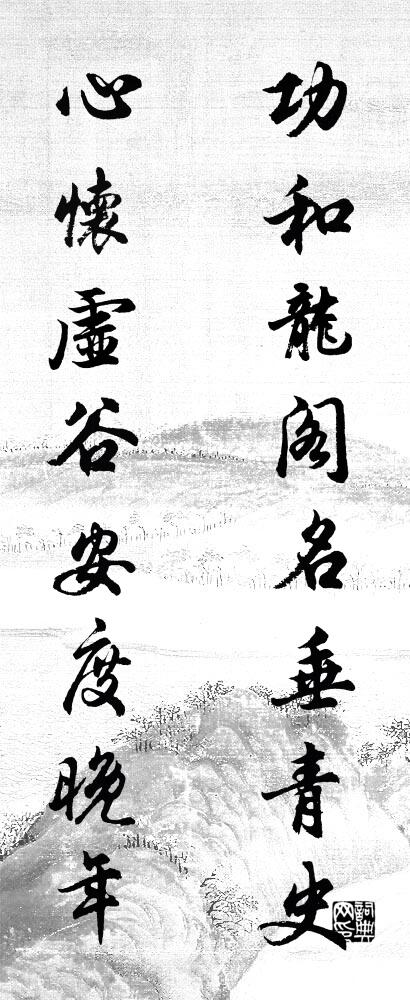 功和龍閣名垂青史
心懷虛谷安度晚年
詞典網印